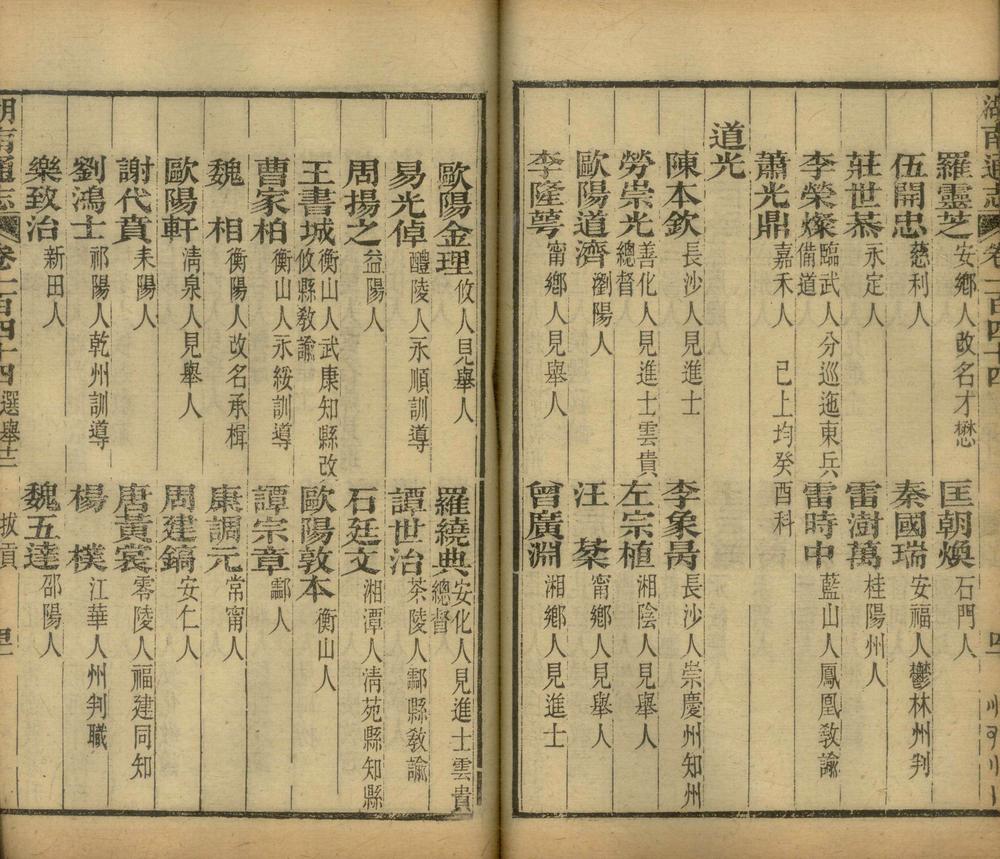 湖南通志 卷一百四十四
羅靈芝 安鄉人改名才懋 匡朝煥 石門人
伍開忠 慈利人 秦國瑞 安福人鬱林州判
莊世棻 永定人 雷澍萬 桂陽州人
李榮燦 臨武人分巡迤東兵備道 雷時中 藍山人鳳凰教諭
蕭光鼎 嘉禾人 已上均癸酉科
道光
陳本欽 長沙人見進士 李象昺 長沙人崇慶州知州
勞崇光 善化人見進士雲貴總督 左宗植 湘陰人見舉人
歐陽道濟 瀏陽人 汪 棻 甯鄉人見舉人
李隆萼 甯鄉人見舉人 曾廣淵 湘鄉人見進士
歐陽金理 攸人見舉人 羅繞典 安化人見進士雲貴總督
易光倬 醴陵人永順訓導 譚世治 茶陵人酃縣教諭
周揚之 益陽人 石廷文 湘潭人清苑縣知縣
王書城 衡山人武康知縣改攸縣教諭 歐陽敦本 衡山人
曹家柏 衡山人永綏訓導 譚宗章 酃人
魏 相 衡陽人改名承楫 康調元 常甯人
歐陽軒 清泉人見舉人 周建鎬 安仁人
謝代賁 耒陽人 唐黃裳 零陵人福建同知
劉鴻士 祁陽人乾州訓導 楊 樸 江華人州判職
樂致治 新田人 魏五達 邵陽人
湖南通志 卷一百四十四 選舉十二 拔貢